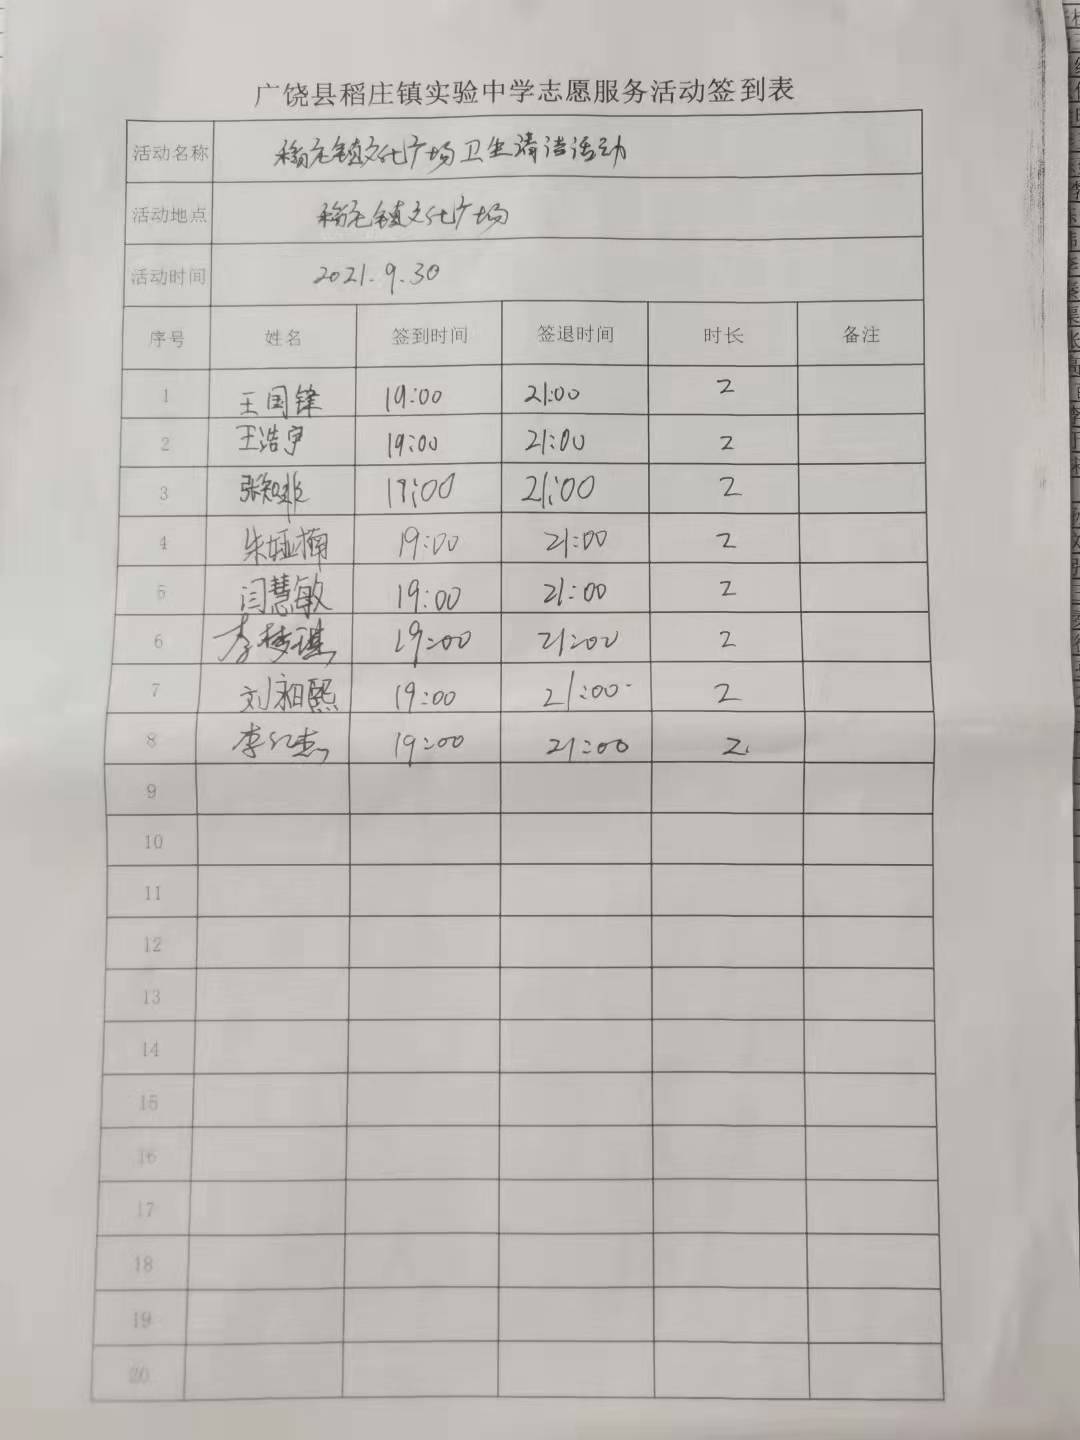 广饶县稻庄镇实验中学志愿服务活动签到表
活动名称 稻庄镇文化广场卫生清洁活动
活动地点 稻庄镇文化广场
活动时间 2021.9.30
序号 姓名 签到时间 签退时间 时长 备注
1 王国锋 19:00 21:00 2
2 王浩宇 19:00 21:00 2
3 张知非 19:00 21:00 2
4 朱娅楠 19:00 21:00 2
5 闫慧敏 19:00 21:00 2
6 李梦琪 19:00 21:00 2
7 刘昶熙 19:00 21:00 2
8 李红杰 19:00 21:00 2
9
10
11
12
13
14
15
16
17
18
19
20